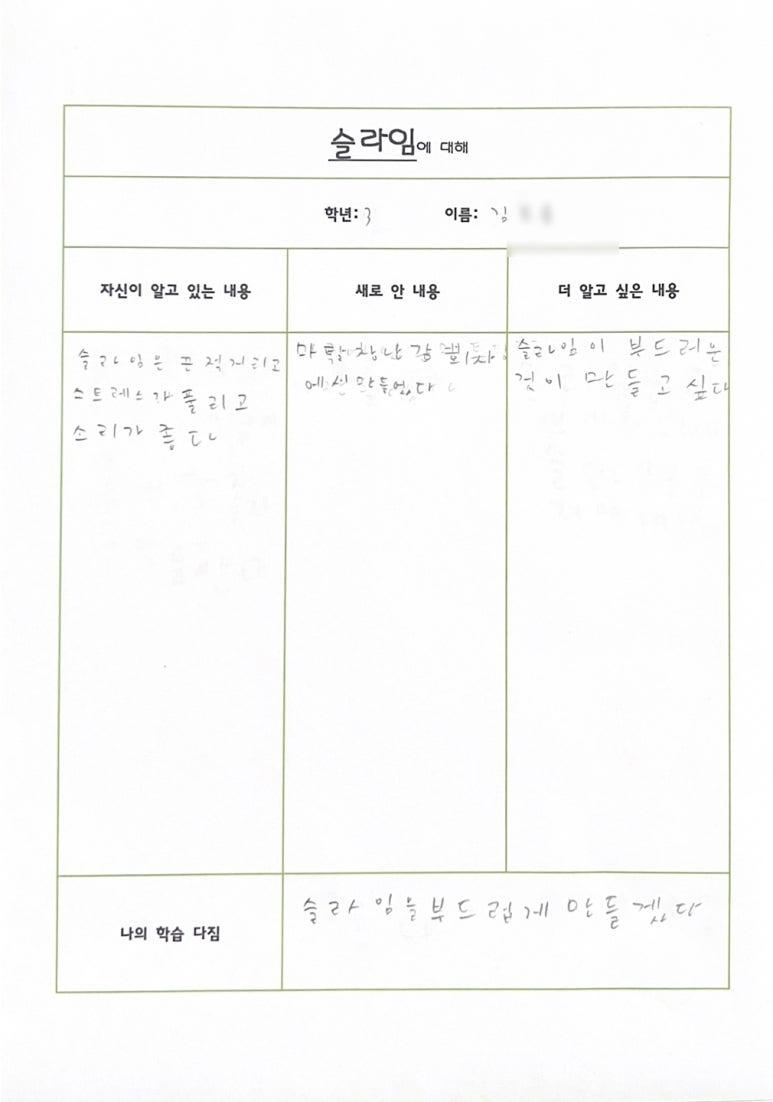 슬라임에 대해
학년: 3 이름: 김
자신이 알고 있는 내용
새로 안 내용
더 알고 싶은 내용
슬라임은 끈적거리고
스트레스가 풀리고
소리가 좋다
장난감
에선만들었다
슬라임이 부드러운
것이 만들고 싶다
나의 학습 다짐
슬라임을부드럽게 만들겠다